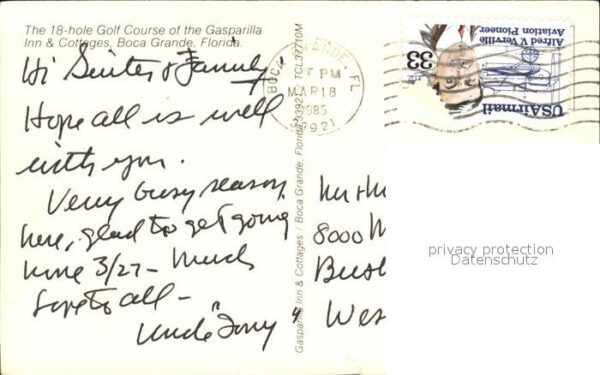 The 18-hole Golf Course of the Gasparilla
Inn & Cottages, Boca Grande, Florida.
Hi Sister & Family
Hope all is well
with you.
Very busy season
here, glad to get going
home 3/27 - Much
Love to all -
"Uncle Tony"
Gasparilla Inn & Cottages / Boca Grande, Florida 33921 TCL37710M
BOCA GRANDE, FL
PM
MAR 18
1985
33921
Alfred V. Verville
Aviation Pioneer
33
USAirmail
8000 M
Wes
privacy protection
Datenschutz